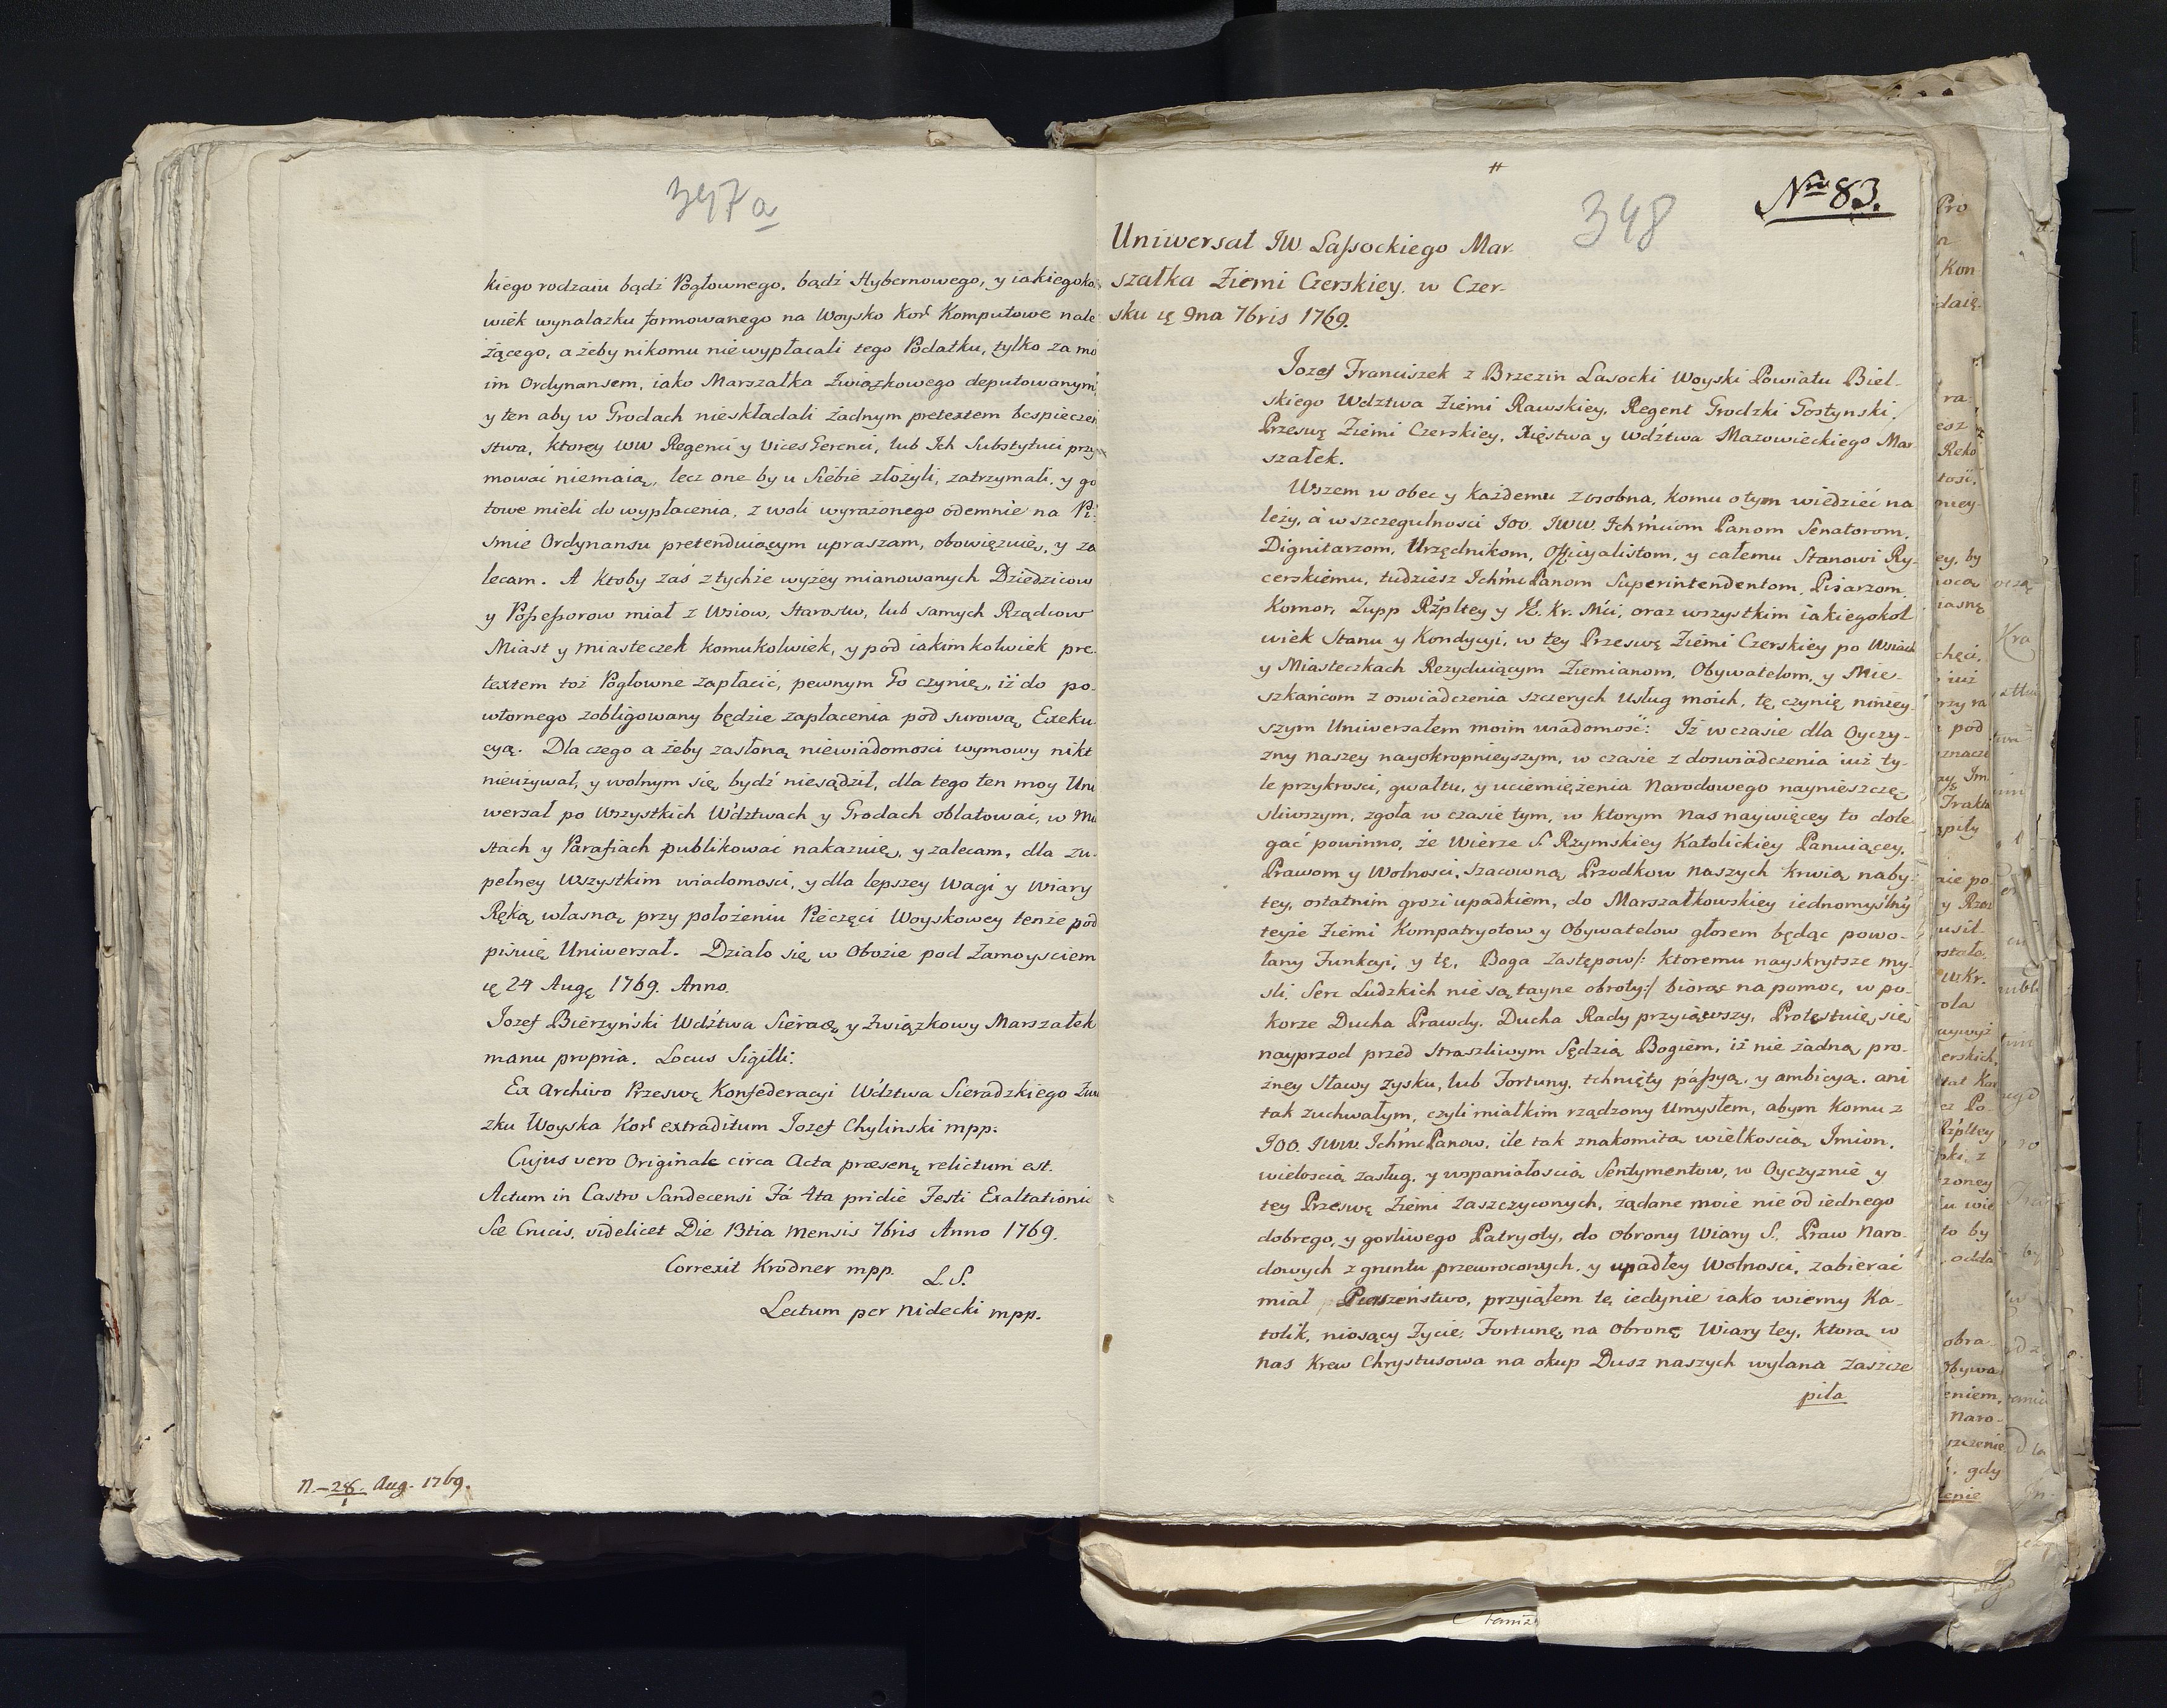 397a
kiego rodzaiu bądź Pogłownego, bądź Hybernowego, y iakiegokol
wiek wynalazku formowanego na Woysko Kor̃ Komputowe nale
żącego, ażeby nikomu niewypłacali tego Podatku, tylko za mo
im Ordynansem, iako Marszałka Związkowego deputowanym,
y ten aby w Grodach nieskładali żadnym pretextem bespieczeń
stwa, ktorey WW Regenci y Vices Gerenci, lub Ich Substytuci przy
mować niemaią, lecz one by u Siebie złożyli, zatrzymali, y go
towe mieli do wypłacenia, z woli wyrażonego odemnie na Pi:
smie Ordynansu pretenduiącym upraszam, obowięzuię, y za
lecam. A Ktoby zaś z tychże wyżey mianowanych Dziedzicow
y Possessorow miał z Wsiow, Starostw, lub samych Rządcow
Miast y miasteczek komukolwiek, y pod iakimkolwiek pre-
textem toż Pogłowne zapłacić, pewnym Go czynię, iż do po-
wtornego zobligowany będzie zapłacenia pod surową Exeku
cyą. Dla czego ażeby zasłoną niewiadomosci wymowy nikt
nieużywał, y wolnym się bydź niesądził, dla tego ten moy Uni
wersał po Wszystkich Wdztwach y Grodach oblatować, w Mia
stach y Parafiach publikować nakazuię, y zalecam, dla zu-
pełney Wszystkim wiadomosci, y dla lepszey Wagi y Wiary
Ręką własną przy położeniu Pieczęci Woyskowey tenże pod
pisuię Uniwersał. Działo się w Obozie pod Zamoysciem
ię 24 Augę 1769. Anno.
Jozef Bierzyński Wdztwa Sieradę y Związkowy Marszałek
manu propria. Locus Sigilli:
Ex Archivo Przeswę Konfederacyi Wdztwa Sieradzkiego Zwią
zku Woyska Kor̃ extraditum Jozef Chylinski mpp.
Cujus vero Originale circa Acta præsenę relictum est.
Actum in Castro Sandecensi Fã 4ta pridie Festi Exaltationis
Sæ Crucis, videlicet Die 13tia mensis 7bris Anno 1769.
Correxit Krodner mpp.
L. S.
Lectum per Nidecki mpp.
n.-28. Aug. 1769.
#
348
Nro 83.
Uniwersał JW Lassockiego Mar-
szałka Ziemi Czerskiey. w Czer-
sku ię 9na 7bris 1769.
Jozef Franciszek z Brzezin Lasocki Woyski Powiatu Biel-
skiego Wdztwa Ziemi Rawskiey, Regent Grodzki Gostynski,
Przeswę Ziemi Czerskiey, Xięstwa y Wdztwa Mazowieckiego Mar-
szałek.
Wszem w obec y każdemu z osobna, komu o tym wiedzieć na
leży, á w szczegulnosci JOO. JWW. Ichmciom Panom Senatorom,
Dignitarzom, Urzędnikom, Officyalistom, y całemu Stanowi Ry-
cerskiemu, tudziesz Ichmć Panom Superintendentom, Pisarzom
Komor, Zupp Rzpltey y JK. Kr. Mci, oraz wszystkim iakiegokol
wiek Stanu y Kondycyi, w tey Przeswę Ziemi Czerskiey po Wsiach
y Miasteczkach Rezyduiącym Ziemianom, Obywatelom, y Mie-
szkańcom z oswiadczenia szczerych Usług moich, tę czynię ninięy-
szym Uniwersałem moim wiadomość: Iż w czasie dla Oyczy-
zny naszey nayokropnieyszym, w czasie z doswiadczenia iuż ty-
le przykrosci, gwałtu, y uciemiężenia Narodowego naynieszczę
sliwszym, zgoła w czasie tym, w ktorym nas naywięcey to dole
gać powinno, że Wierze S. Rzymskiey Katolickiey Panuiącey,
Prawom y Wolnosci, szacowną Przodkow naszych krwią naby-
tey, ostatnim grozi upadkiem, do Marszałkowskiey iednomyślny
teyże Ziemi Kompatryotow y Obywatelow głosem będąc powo-
łany Funkcyi, y tę, Boga Zastępow/: ktoremu nayskrytsze my-
sli, Serc Ludzkich nie są tayne obroty:/ biorąc na pomoc, w po-
korze Ducha Prawdy, Ducha Rady przyiąwszy, Protestuię się
nayprzod przed Straszliwym Sędzią Bogiem, iż nie żadną pro-
żney Sławy zysku, lub Fortuny, tchnięty passyą, y ambicyą, ani
tak zuchwałym, czyli miałkim rządzony Umysłem, abym komu z
JOO. JWW. Ichmć Panow, ile tak znakomitą wielkoscią Imion,
wieloscią zasług, y wspaniałoscią Sentymentow, w Oyczyznie y
tey Przeswę Ziemi Zaszczyconych, żądane moie nie od iednego
dobrego, y gorliwego Patryoty, do Obrony Wiary S. Praw Naro-
dowych z gruntu przewroconych, y upadłey Wolnosci, zabierać
miał Pierszeństwo, przyiąłem tę iedynie iako wierny Ka-
tolik, niosący Zycie, Fortunę na Obronę Wiary tey, ktorą w
nas Krew Chrystusowa na okup Dusz naszych wylana Zaszcze
piła